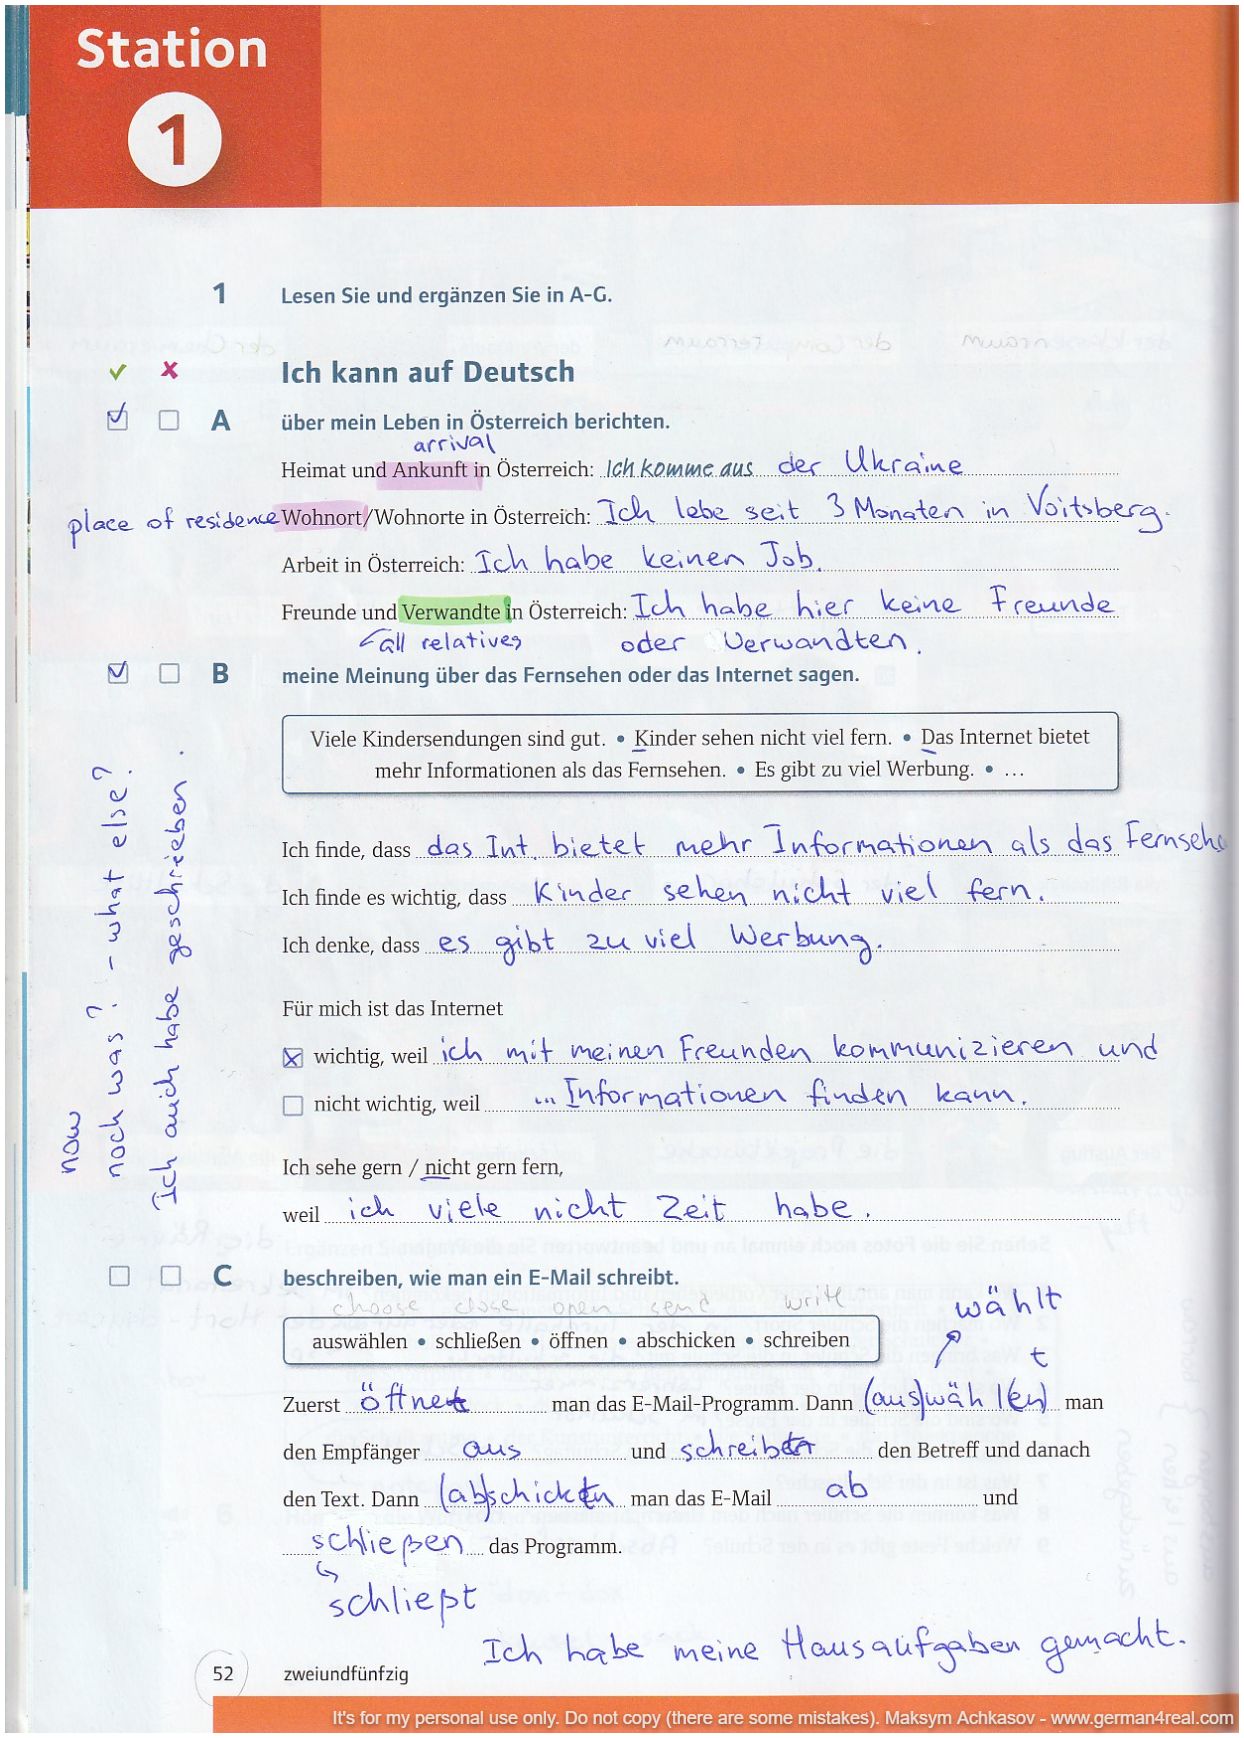 Station
1
1 Lesen Sie und ergänzen Sie in A–G.
✓ ✗ Ich kann auf Deutsch
A über mein Leben in Österreich berichten.
arrival
Heimat und Ankunft in Österreich: Ich komme aus der Ukraine
place of residence Wohnort/Wohnorte in Österreich: Ich lebe seit 3 Monaten in Voitsberg.
Arbeit in Österreich: Ich habe keinen Job.
Freunde und Verwandte in Österreich: Ich habe hier keine Freunde
all relatives oder Verwandten.
B meine Meinung über das Fernsehen oder das Internet sagen.
Viele Kindersendungen sind gut. • Kinder sehen nicht viel fern. • Das Internet bietet
mehr Informationen als das Fernsehen. • Es gibt zu viel Werbung. • ...
Ich finde, dass das Int. bietet mehr Informationen als das Fernsehe
Ich finde es wichtig, dass Kinder sehen nicht viel fern.
Ich denke, dass es gibt zu viel Werbung.
Für mich ist das Internet
wichtig, weil ich mit meinen Freunden kommunizieren und
nicht wichtig, weil ... Informationen finden kann.
Ich sehe gern / nicht gern fern,
weil ich viele nicht Zeit habe.
now
noch was? - what else?
Ich auch habe geschrieben.
C beschreiben, wie man ein E-Mail schreibt.
choose close open send write
auswählen • schließen • öffnen • abschicken • schreiben
wählt
t
Zuerst öffnet man das E-Mail-Programm. Dann (aus)wähl(en) man
den Empfänger aus und schreibt den Betreff und danach
den Text. Dann (ab)schickt man das E-Mail ab und
schließen das Programm.
schließt
Ich habe meine Hausaufgaben gemacht.
52 zweiundfünfzig
It's for my personal use only. Do not copy (there are some mistakes). Maksym Achkasov - www.german4real.com